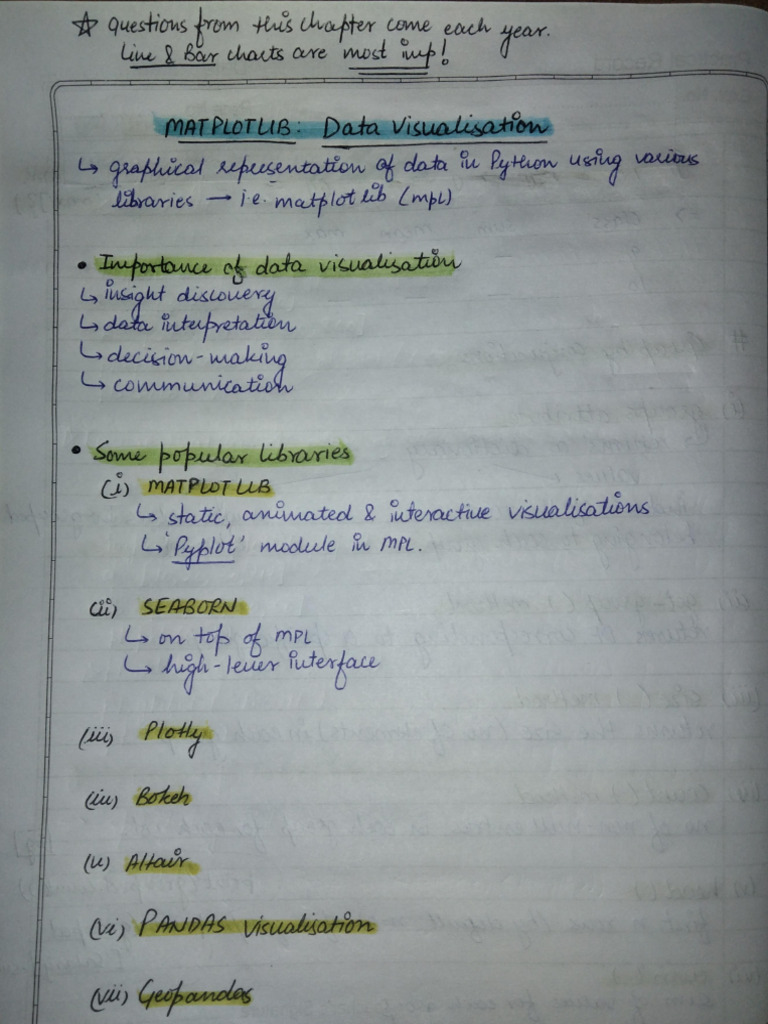 ☆ Questions from this chapter come each year.
Line & Bar charts are most imp!
MATPLOTLIB: Data Visualisation
↳ graphical representation of data in Python using various
libraries → i.e. matplotlib (mpl)
• Importance of data visualisation
↳ insight discovery
↳ data interpretation
↳ decision-making
↳ communication
• Some popular libraries
(i) MATPLOTLIB
↳ static, animated & interactive visualisations
↳ 'Pyplot' module in MPL.
(ii) SEABORN
↳ on top of MPL
↳ high-level interface
(iii) Plotly
(iv) Bokeh
(v) Altair
(vi) PANDAS visualisation
(vii) Geopandas